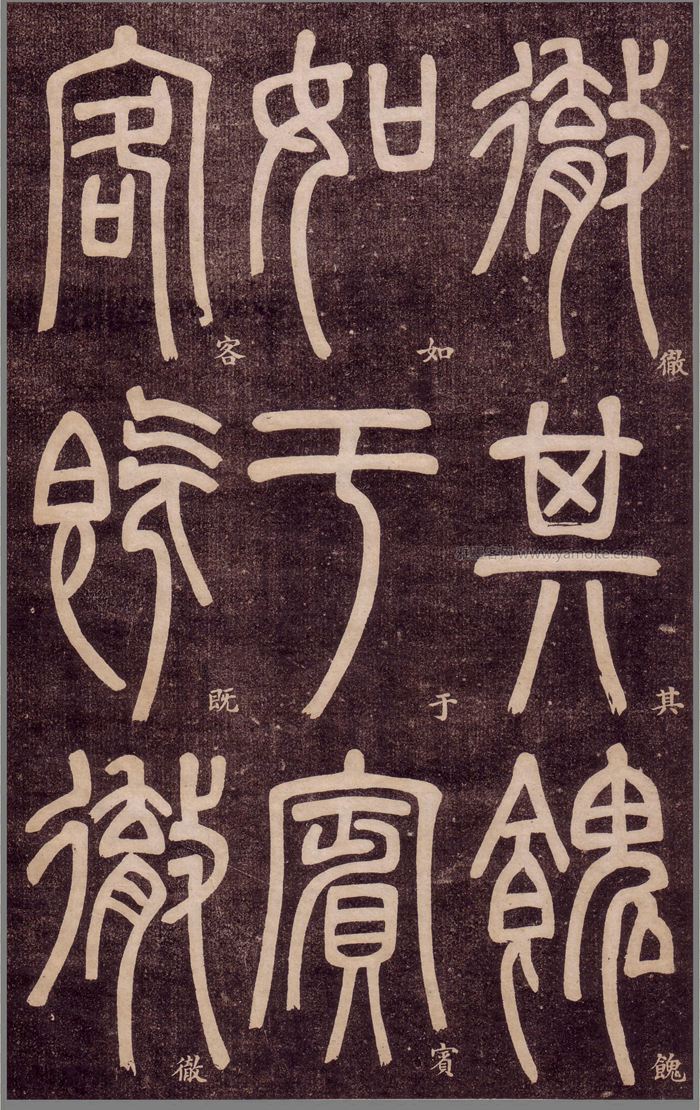 徹其餽
徹其餽
如于賓
如于賓
客既徹
客既徹
www.yamoke.com